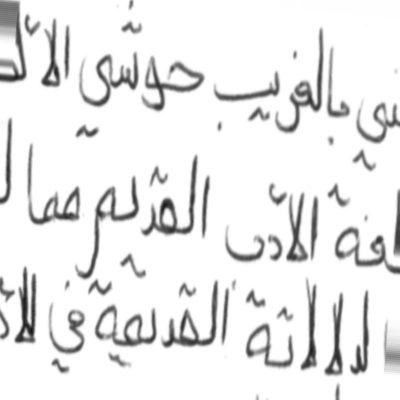 بالغريب حوشى الأ
فة الأدب القديم مما
لدلالاتة القديمة في الأ